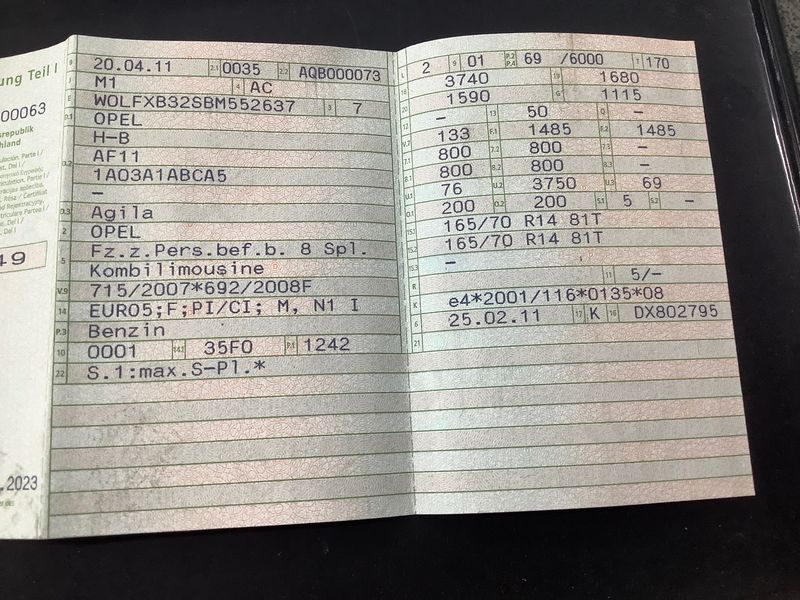 ung Teil I
00063
srepublik
hland
49
.2023
B 20.04.11 2.1 0035 2.2 AQB000073
J M1 4 AC
E WOLFXB32SBM552637 3 7
D.1 OPEL
H-B
D.2 AF11
1A03A1ABCA5
–
D.3 Agila
2 OPEL
5 Fz.z.Pers.bef.b. 8 Spl.
Kombilimousine
V.9 715/2007*692/2008F
14 EURO5;F;PI/CI; M, N1 I
P.3 Benzin
10 0001 14.1 35F0 P.1 1242
22 S.1:max.S-Pl.*
L 2 9 01 P.2 P.4 69 /6000 T 170
18 3740 19 1680
20 1590 G 1115
12 – 13 50 Q –
V.7 133 F.1 1485 F.2 1485
7.1 800 7.2 800 7.3 –
8.1 800 8.2 800 8.3 –
U.1 76 U.2 3750 U.3 69
O.1 200 O.2 200 S.1 5 S.2 –
15.1 165/70 R14 81T
15.2 165/70 R14 81T
15.3 –
R 11 5/–
K e4*2001/116*0135*08
6 25.02.11 17 K 16 DX802795
21